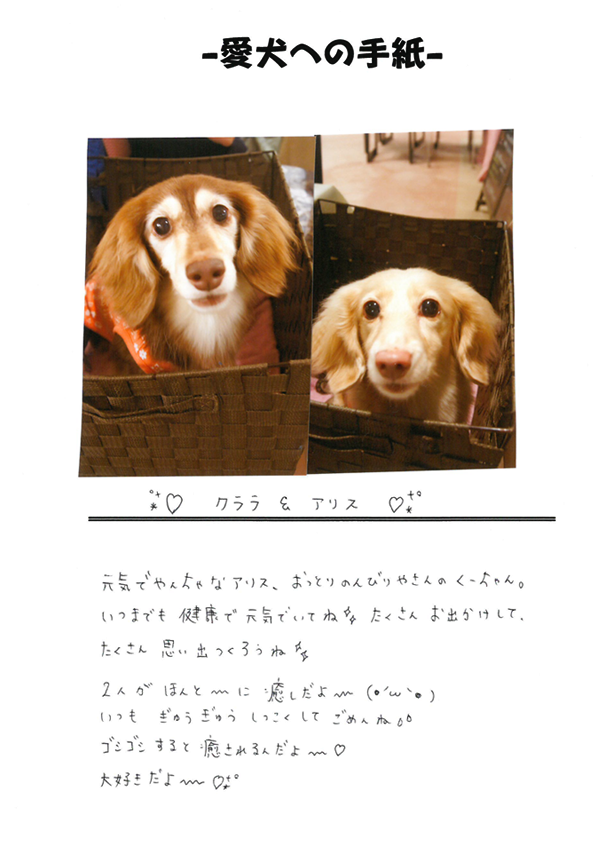 -愛犬への手紙-
クララ & アリス
元気でやんちゃなアリス、おっとりのんびりやさんのくーちゃん。
いつまでも健康で元気でいてね たくさんお出かけして、
たくさん思い出つくろうね
2人がほんと〜に癒しだよ〜(●´ω`●)
いつもぎゅうぎゅうしつこくしてごめんね。。
ゴシゴシすると癒されるんだよ〜♡
大好きだよ〜♡